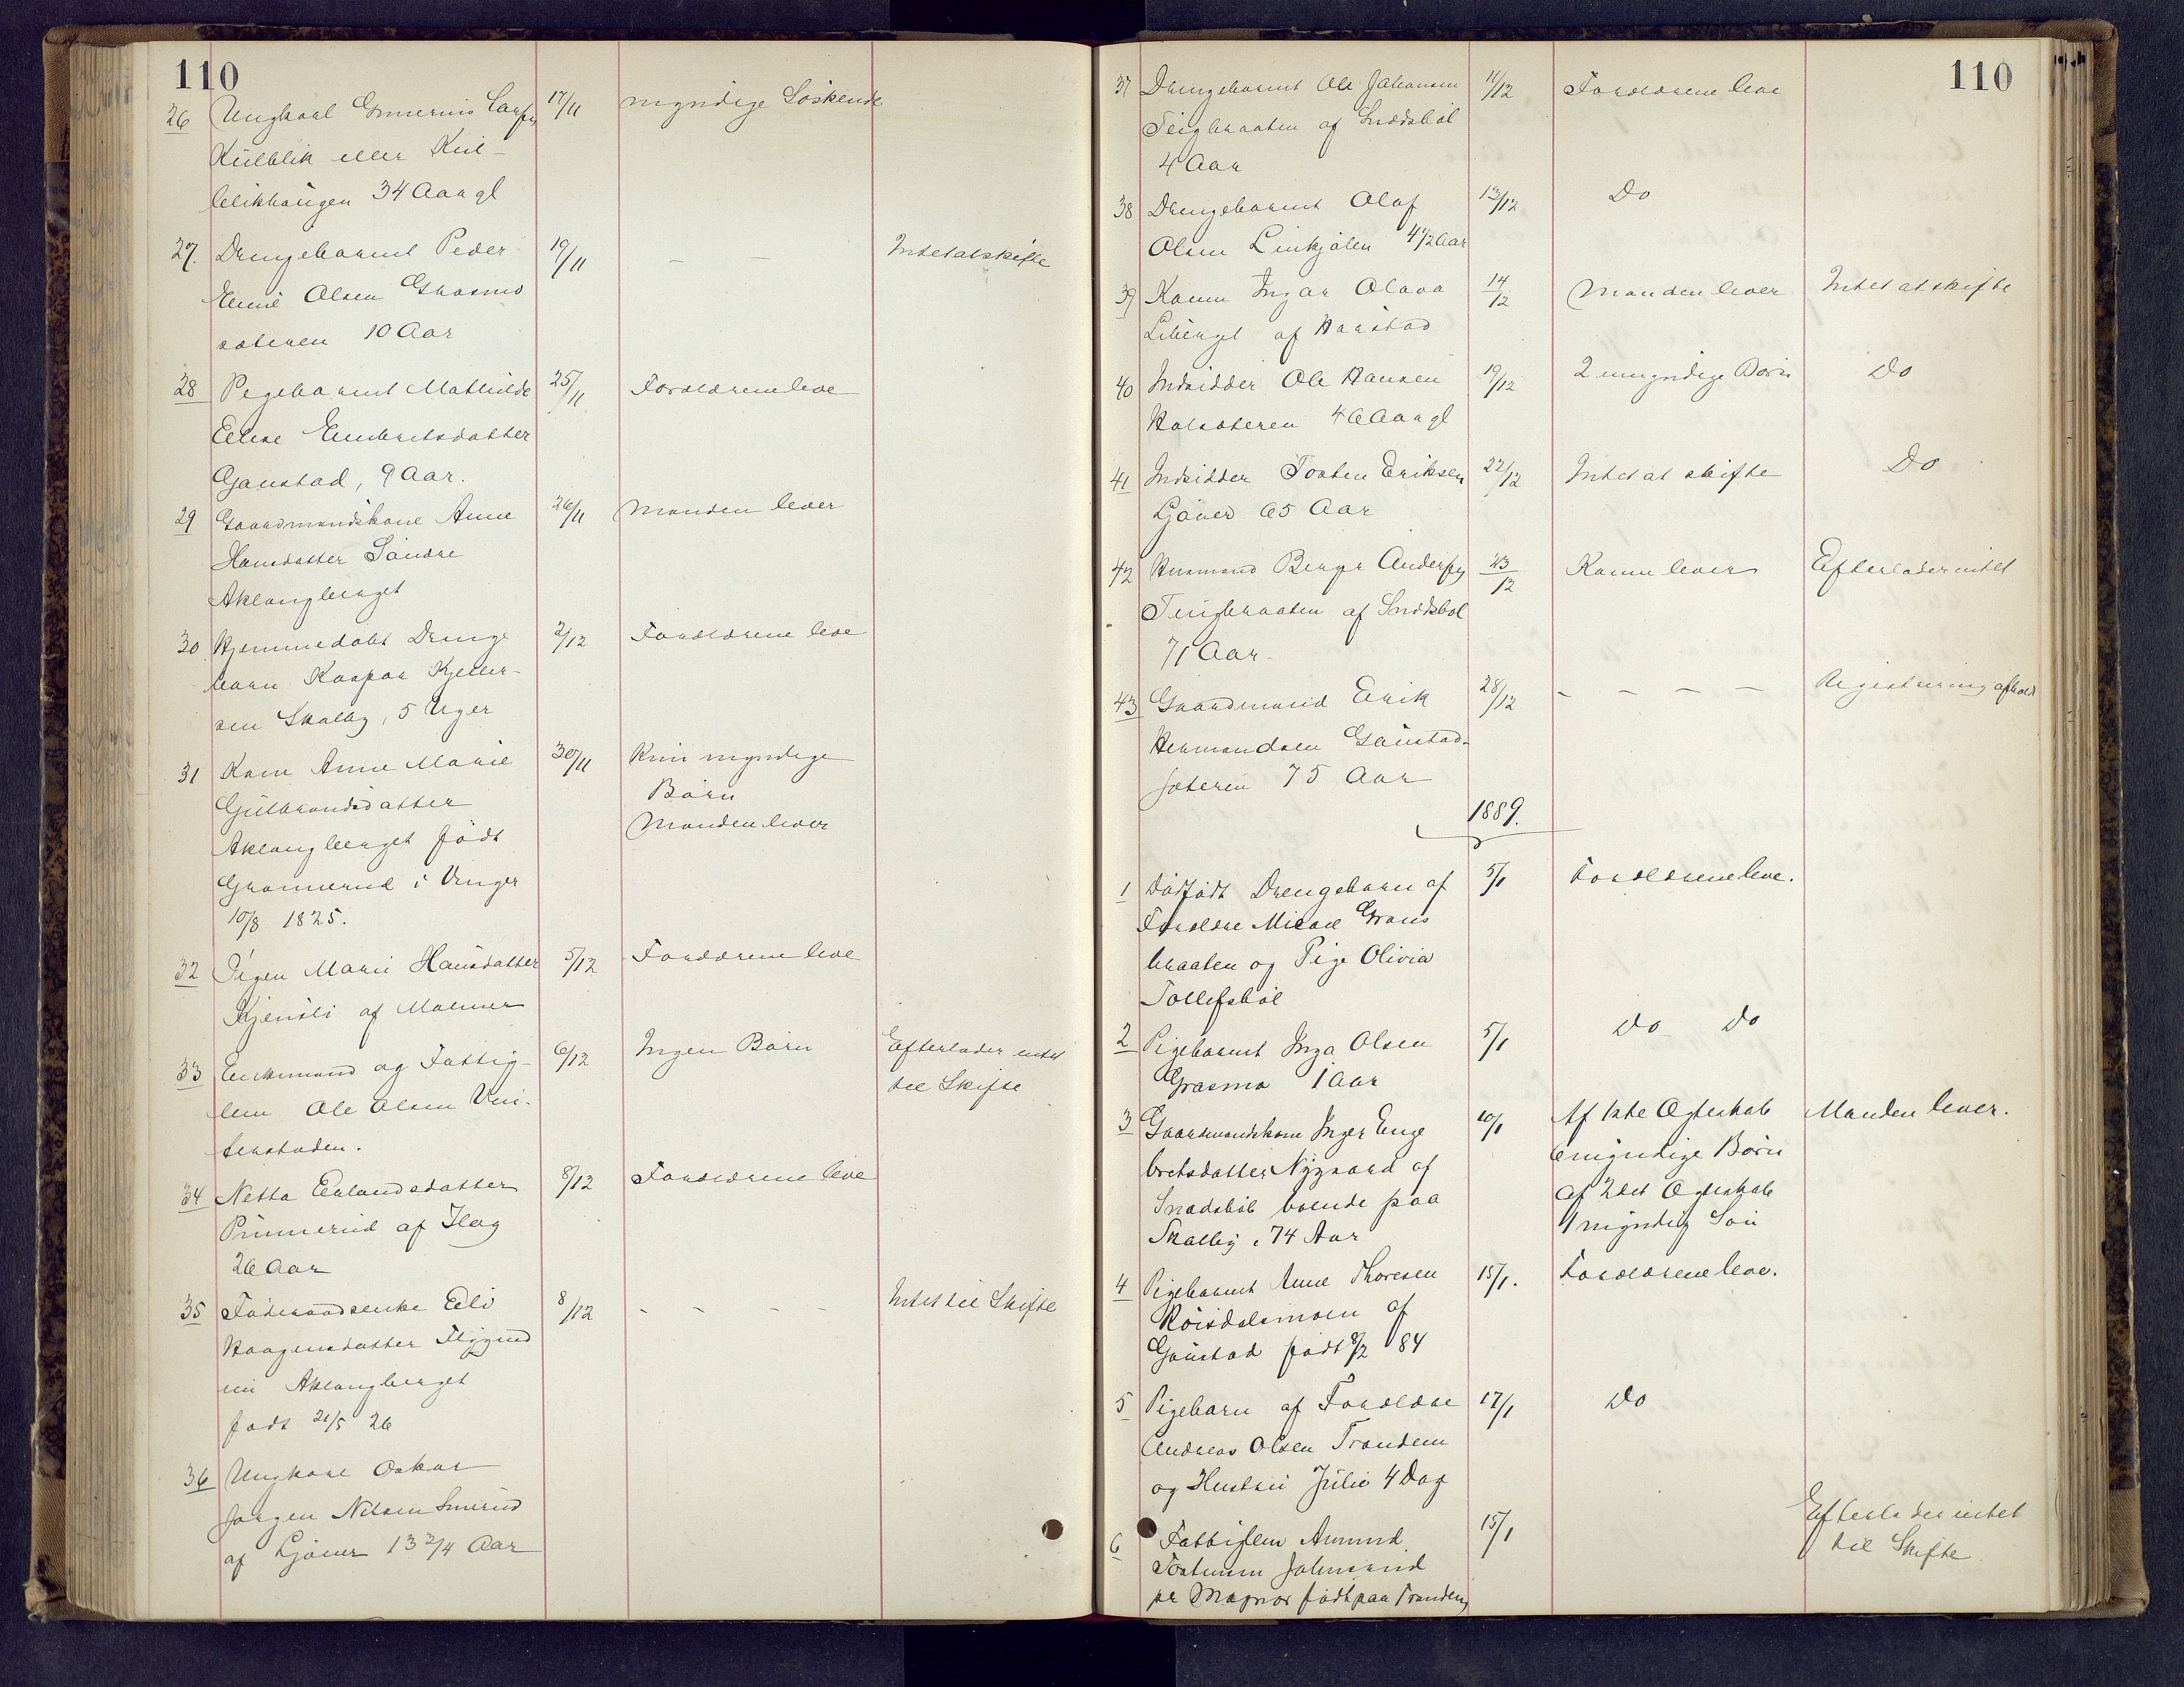 110
26 Ungkarl Gunerius Larss 17/11 myndige Søskende
Kulblik eller Kul-
blikhaugen 34 Aar gl
27. Drengebarnet Peder 19/11 – – Intet at skifte
Emil Olsen Grasmo
sæteren 10 Aar
28 Pegebarnet Mathilde 25/11 Forældrene leve
Eline Embretsdatter
Gaustad, 9 Aar.
29 Gaardmandskone Anne 26/11 Manden lever
Hansdatter Søndre
Aklangberget
30 Hjemmedøbt Drenge 2/12 Forældrene leve
barn Kaspar Kjeller-
sen Skalby, 5 Uger
31 Kone Anne Marie 30/11 Kun myndige
Gulbrandsdatter Børn
Aklangberget født Manden lever
Grannerud i Vinger
10/8 1825.
32 Pigen Marie Hansdatter 5/12 Forældrene leve
Kjensli af Malmer
33 Enkemand og Fattig- 6/12 Ingen Børn Efterlader intet
lem Ole Olsen til Skifte
34 Netta Erlandsdatter 8/12 Forældrene leve
Pinnerud af Ilag
26 Aar
35 Føderaadsenke Eli 8/12 – – – – Intet til Skifte
Haagensdatter Flygind
Aklangberget
født 21/5 26
36 Ungkarl Oskar
Jørgen Nilsen Smerud
af Gjøner 13 3/4 Aar
110
37 Drengebarnet Ole Johansen 11/12 Forældrene leve
Teigbraaten af Snodsbøl
4 Aar
38 Drengebarnet Olaf 13/12 Do
Olsen Linkjølen 4 1/2 Aar
39 Kone Ingar Olava 14/12 Manden lever Intet at skifte
Liberget af Haarstad
40 Indsidder Ole Hansen 19/12 2 umyndige Børn Do
Holsæteren 46 Aar gl
41 Indsidder Tosten Eriksen 22/12 Intet at skifte Do
Gjøner 65 Aar
42 Husmand Berger Anderss 23/12 Konen lever Efterlader intet
Teigbraaten af Snodsbøl
71 Aar
43 Gaardmand Erik 28/12 – – – – Registrering afhold
Hermandsen Gaustad-
sæteren 75 Aar
1889.
1 Dødfødt Drengebarn af 5/1 Forældrene leve.
Forældre Micael Grans
braaten og Pige Olivia
Tollefsbøl
2 Pigebarnet Inga Olsen 5/1 Do Do
Grasmo 1 Aar
3 Gaardmandskone Inger Enge 10/1 Af 1ste Ægteskab Manden lever.
bretsdatter Nygaard af 6 myndige Børn
Snodsbøl boende paa af 2det Ægteskab
Skalby, 74 Aar 1 myndig Søn
4 Pigebarnet Anne Thoresen 15/1. Forældrene leve.
Roisdalsmoen af
Gaustad født 8/2 84
5 Pigebarn af Forældre 17/1 Do
Andreas Olsen Trandem
og Hustru Julie 4 Dag
6 Fattiglem Amund 15/1 Efterlader intet
Tostensen Johnsrud til Skifte
pr Magnor født paa Trandem